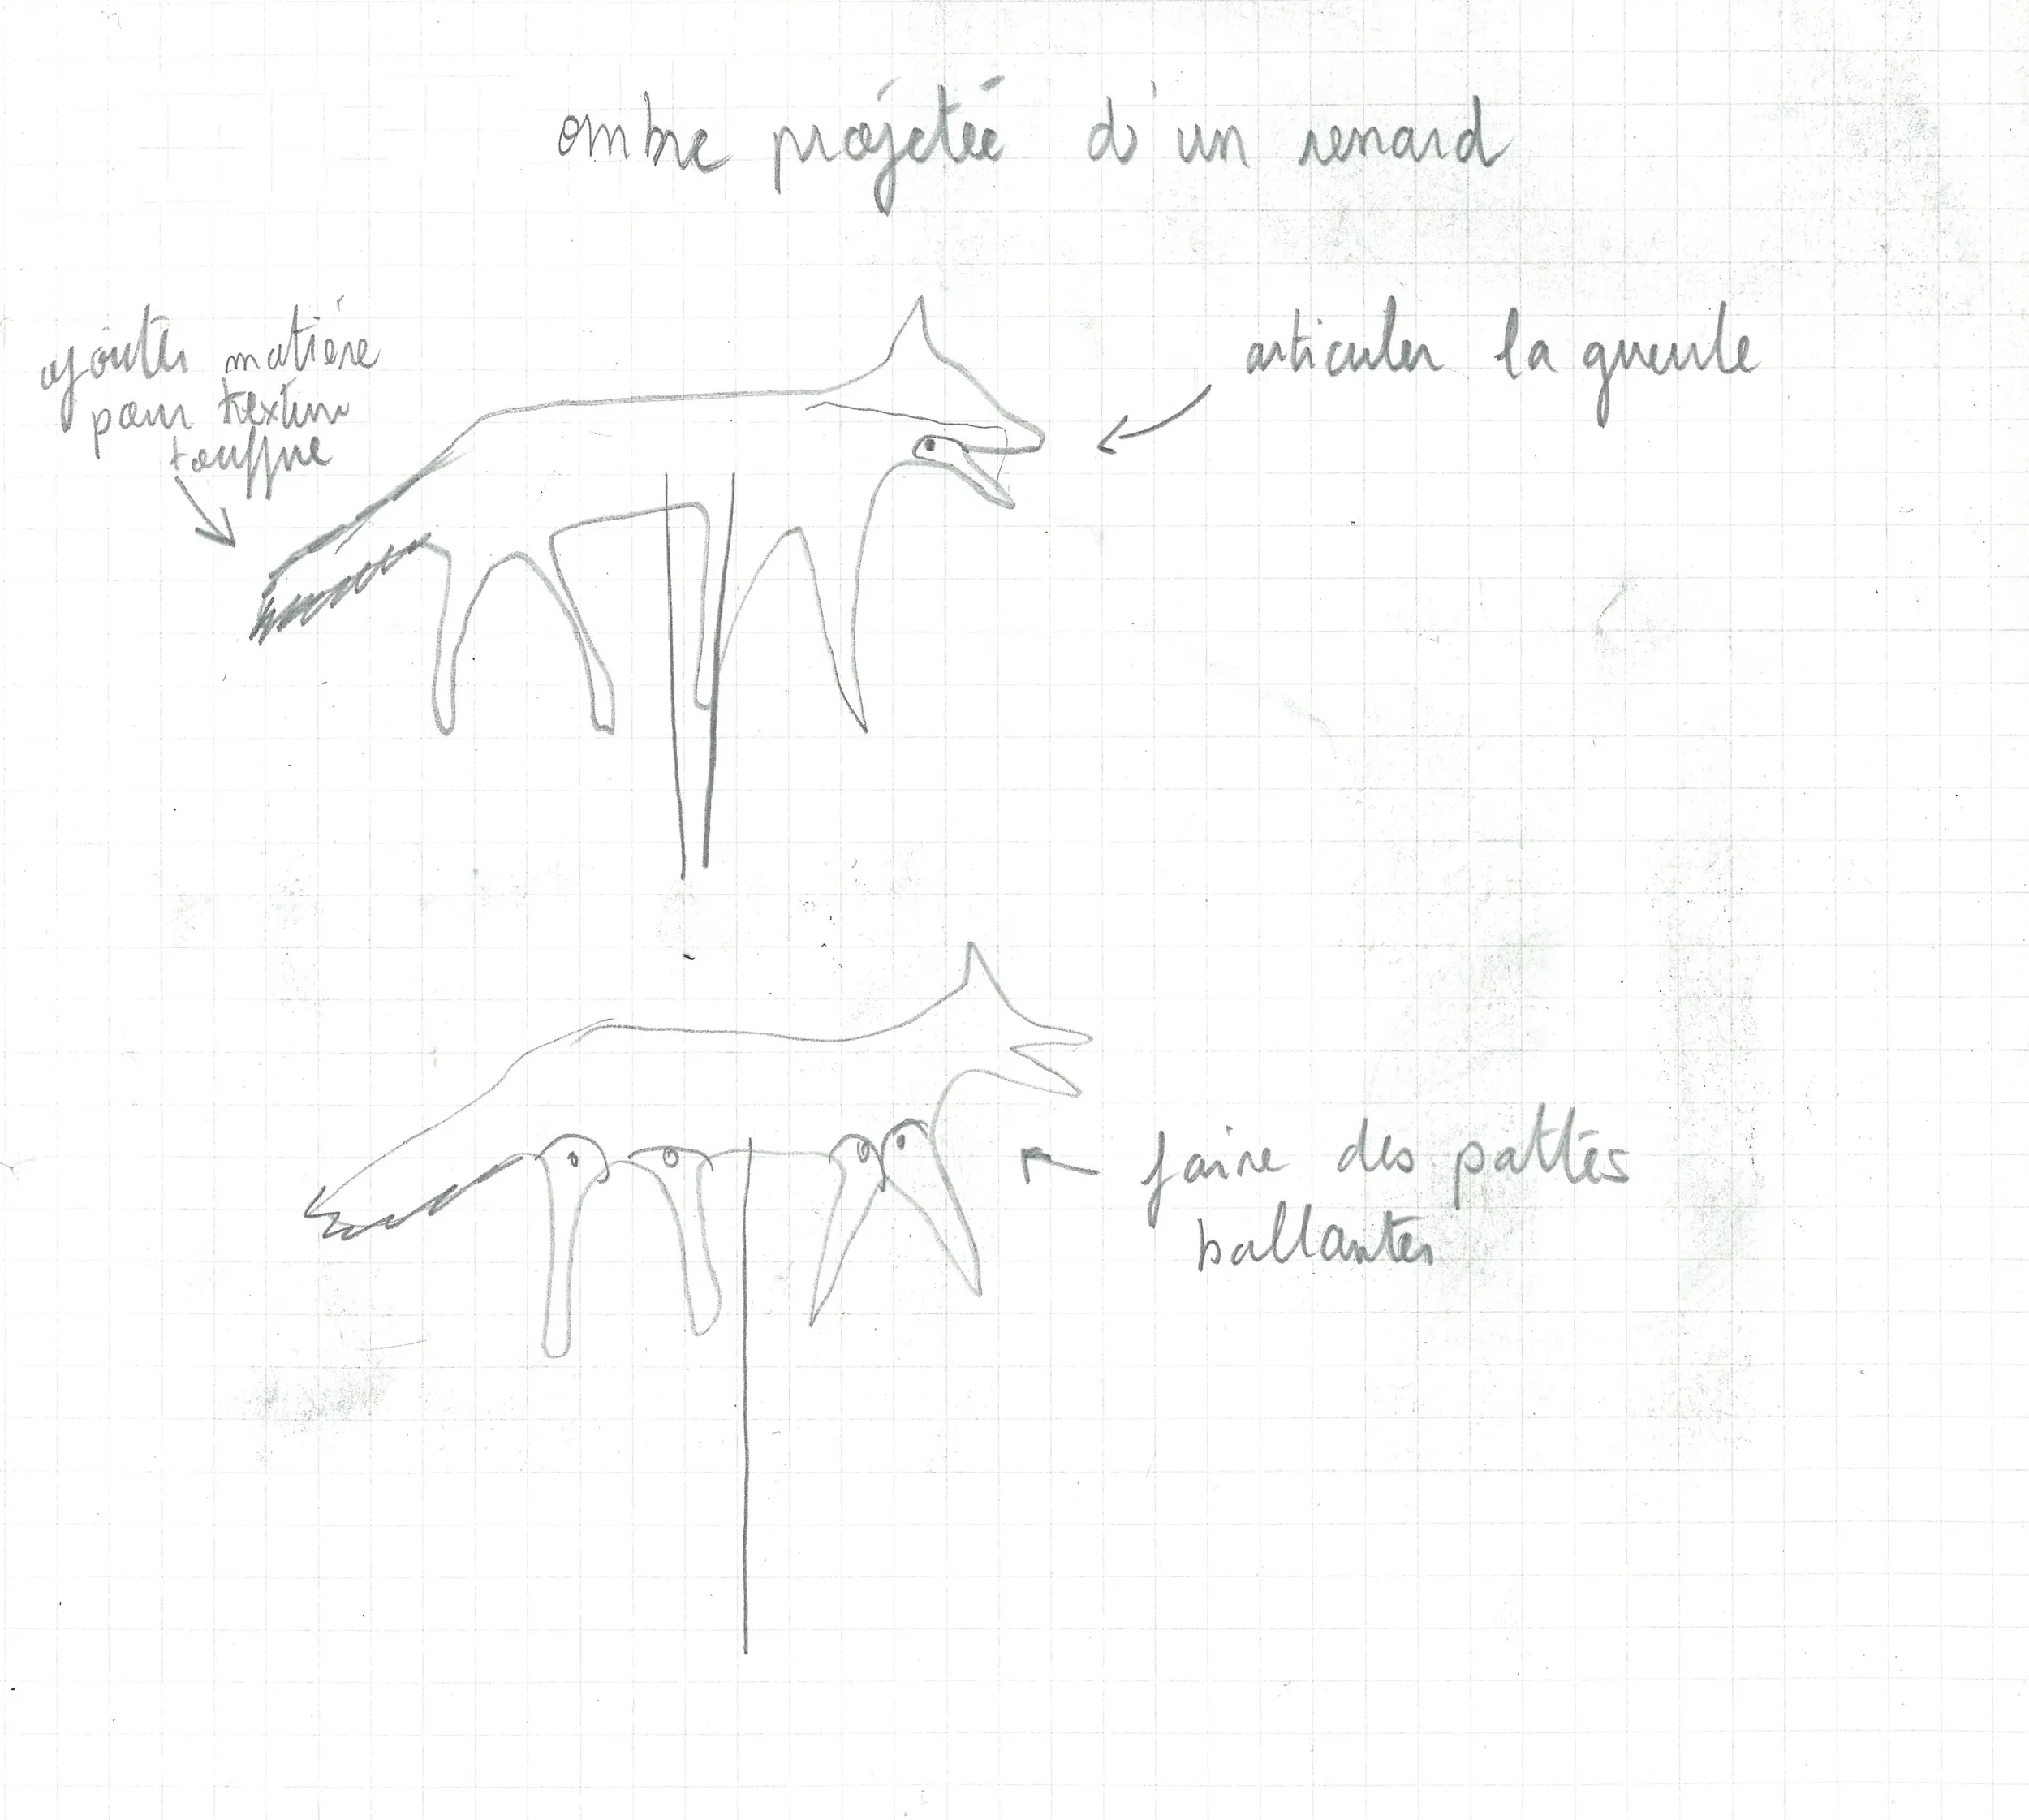 ombre projetée d'un renard
ajouter matière
pour texture
touffue
articuler la gueule
faire des pattes
ballantes